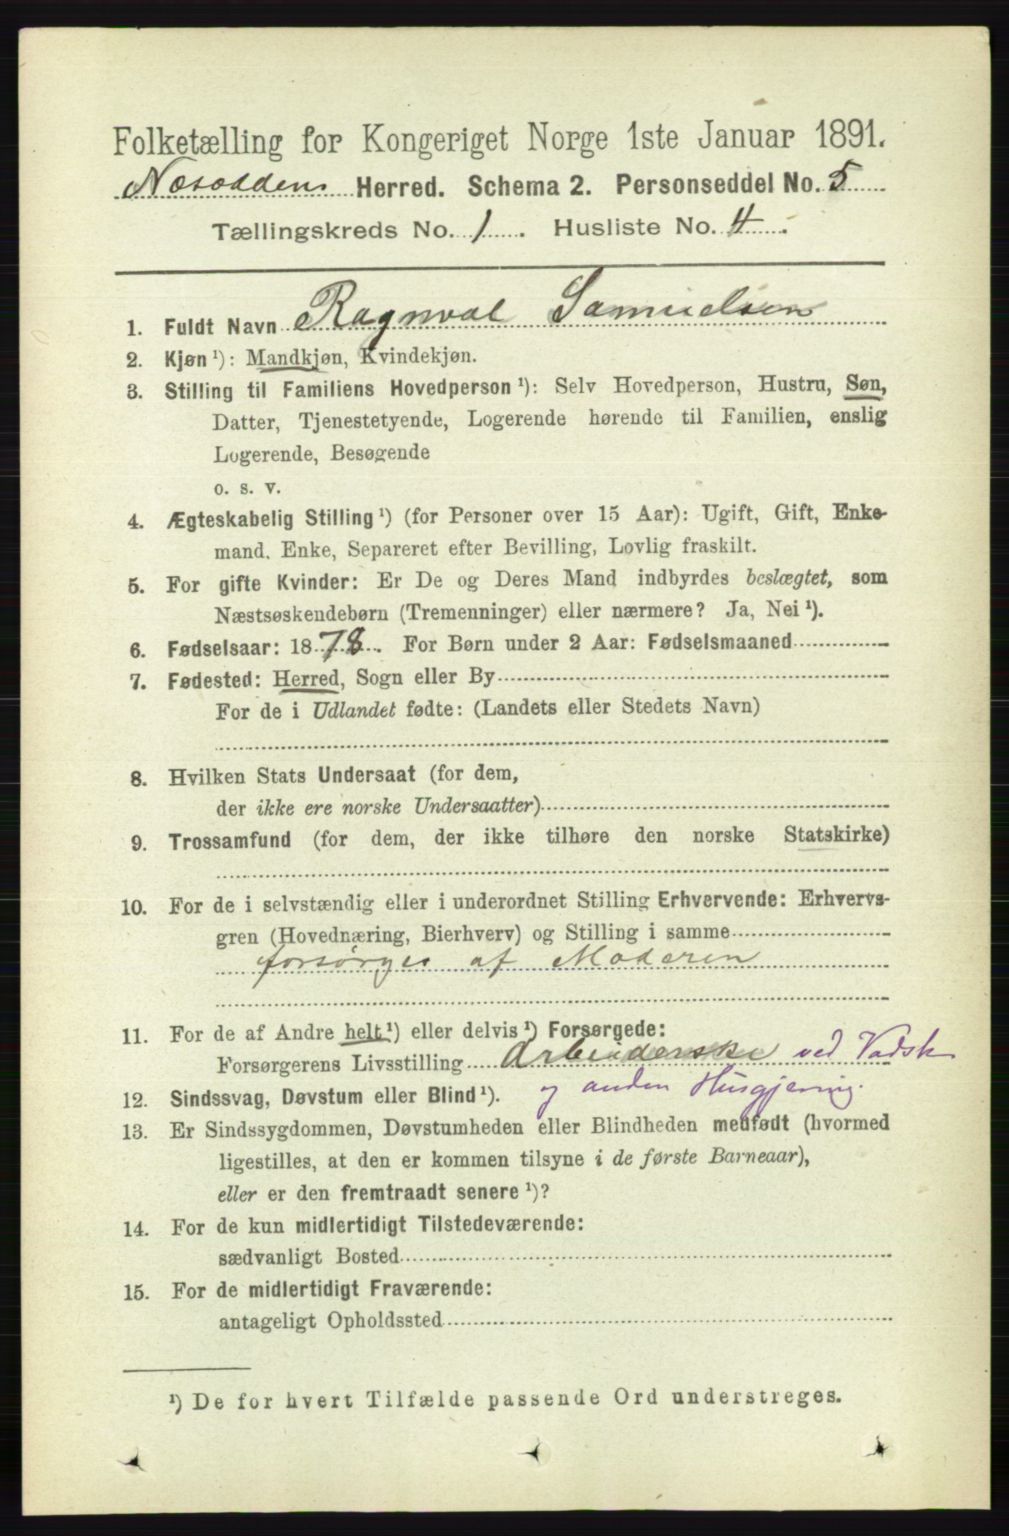 Folketælling for Kongeriget Norge 1ste Januar 1891.
Næsoddens Herred. Schema 2. Personseddel No. 5
Tællingskreds No. 1. Husliste No. 4.
1. Fuldt Navn Ragnval Samuelsen
2. Kjøn ¹): Mandkjøn, Kvindekjøn.
3. Stilling til Familiens Hovedperson ¹): Selv Hovedperson, Hustru, Søn,
Datter, Tjenestetyende, Logerende hørende til Familien, enslig
Logerende, Besøgende
o. s. v.
4. Ægteskabelig Stilling ¹) (for Personer over 15 Aar): Ugift, Gift, Enke-
mand, Enke, Separeret efter Bevilling, Lovlig fraskilt.
5. For gifte Kvinder: Er De og Deres Mand indbyrdes beslægtet, som
Næstsøskendebørn (Tremenninger) eller nærmere? Ja, Nei ¹).
6. Fødselsaar: 1878. For Børn under 2 Aar: Fødselsmaaned
7. Fødested: Herred, Sogn eller By
For de i Udlandet fødte: (Landets eller Stedets Navn)
8. Hvilken Stats Undersaat (for dem,
der ikke ere norske Undersaatter)
9. Trossamfund (for dem, der ikke tilhøre den norske Statskirke)
10. For de i selvstændig eller i underordnet Stilling Erhvervende: Erhvervs-
gren (Hovednæring, Bierhverv) og Stilling i samme
forsørges af Moderen
11. For de af Andre helt ¹) eller delvis ¹) Forsørgede:
Forsørgerens Livsstilling Arbeiderske ved Vadsk
og anden Husgjerning.
12. Sindssvag, Døvstum eller Blind ¹).
13. Er Sindssygdommen, Døvstumheden eller Blindheden medfødt (hvormed
ligestilles, at den er kommen tilsyne i de første Barneaar),
eller er den fremtraadt senere ¹)?
14. For de kun midlertidigt Tilstedeværende:
sædvanligt Bosted
15. For de midlertidigt Fraværende:
antageligt Opholdssted
¹) De for hvert Tilfælde passende Ord understreges.